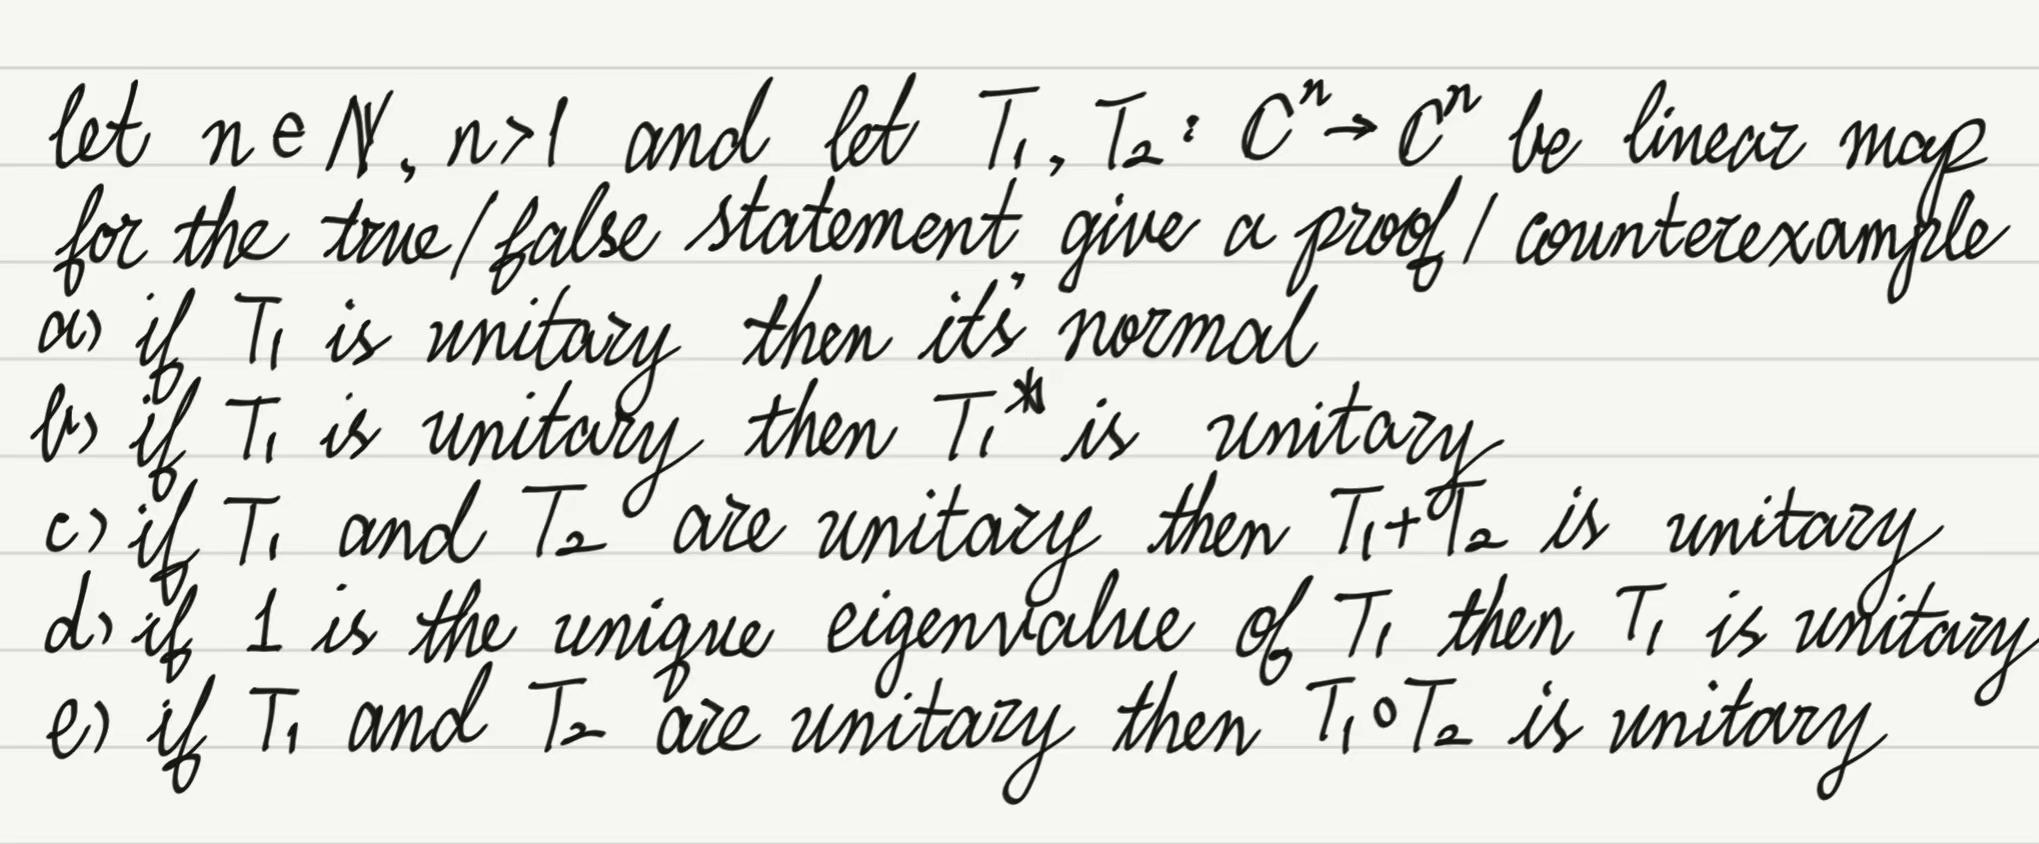 let n ∈ N, n>1 and let T₁, T₂: Cⁿ→Cⁿ be linear map
for the true/false statement give a proof/counterexample
a) if T₁ is unitary then it's normal
b) if T₁ is unitary then T₁* is unitary
c) if T₁ and T₂ are unitary then T₁+T₂ is unitary
d) if 1 is the unique eigenvalue of T₁ then T₁ is unitary
e) if T₁ and T₂ are unitary then T₁∘T₂ is unitary